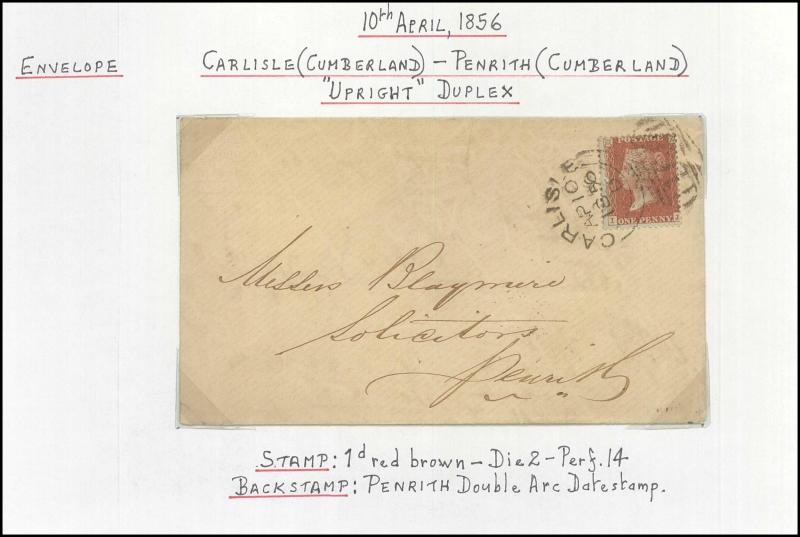 10th APRIL, 1856
ENVELOPE
CARLISLE (CUMBERLAND) – PENRITH (CUMBERLAND)
"UPRIGHT" DUPLEX
CARLISLE
AP 10
1856
POSTAGE
ONE PENNY
Messrs Blaymire
Solicitors
Penrith
STAMP: 1d red brown – Die 2 – Perf. 14
BACKSTAMP: PENRITH Double Arc Datestamp.